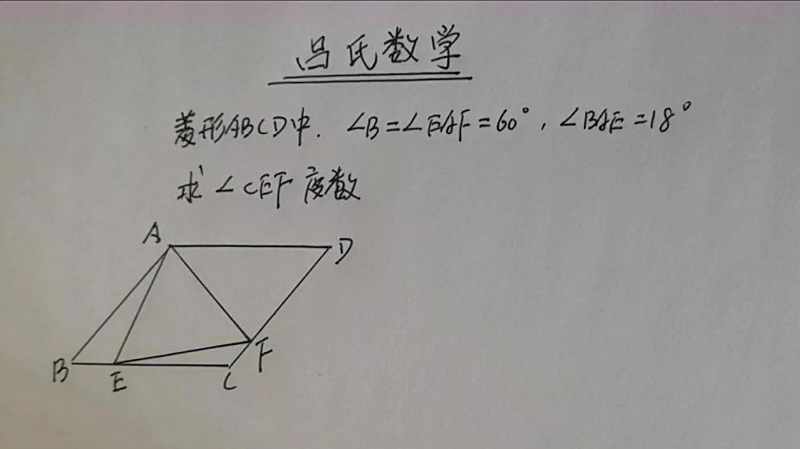 吕氏数学
菱形ABCD中. ∠B=∠EAF=60°, ∠BAE=18°
求∠CEF度数
A
D
B
E
C
F